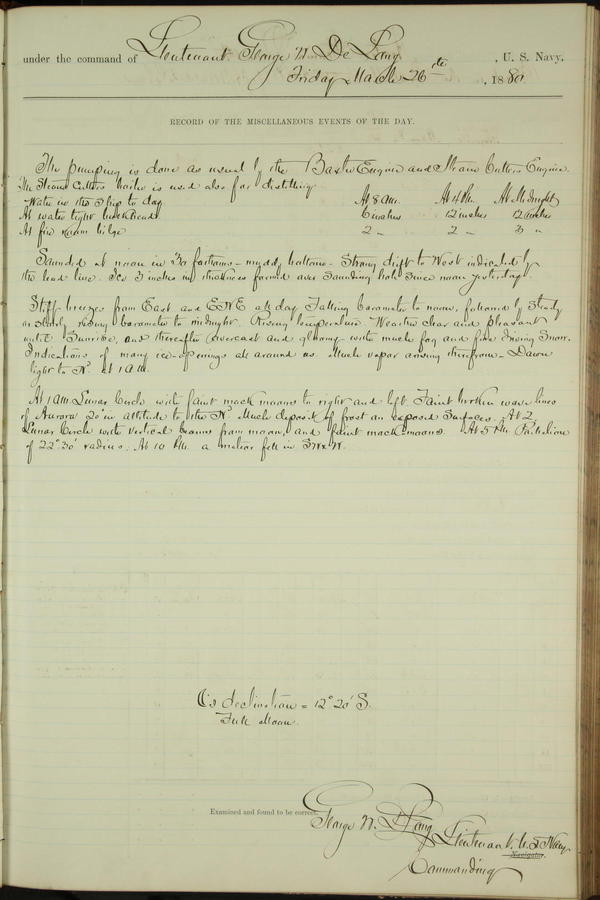 under the command of Lieutenant George W. De Long, U. S. Navy,
Friday March 26th, 1880
RECORD OF THE MISCELLANEOUS EVENTS OF THE DAY.
The pumping is done as usual by the Baxter Engine and Steam Cutters Engine.
The Steam Cutters boiler is used also for distilling.
Water in the Ship to day At 8 AM. At 4 PM. At Midnight
At water tight bulkhead 6 inches 12 inches 12 inches
At fire room bilge 2 " 2 " 3 "
Sounded at noon in 30 fathoms - muddy bottom. Strong drift to West indicated by
the lead line. Ice 3 inches in thickness formed over Sounding hole since noon yesterday.
Stiff breezes from East and ENE all day. Falling barometer to noon, followed by Steady
or slowly rising barometer to midnight. Rising temperature. Weather clear and pleasant
until Sunrise, and thereafter overcast and gloomy with much fog and fine driving Snow.
Indications of many ice-openings all around us. Much vapor arising therefrom - Dawn
light to Nd at 1 AM.
At 1 AM Lunar Circle with faint mock moons to right and left. Faint broken wave lines
of Aurora 20° in altitude to the Nd. Much deposit of frost on exposed Surfaces. At 2,
Lunar Circle with vertical beams from moon, and faint mock-moons. At 5 PM. Parhelion
of 22° 30' radius. At 10 PM. a meteor fell in SWxW.
☾'s declination = 12° 20' S.
Full Moon.
Examined and found to be correct.
George W. De Long Lieutenant. U. S. Navy
Navigator.
Commanding